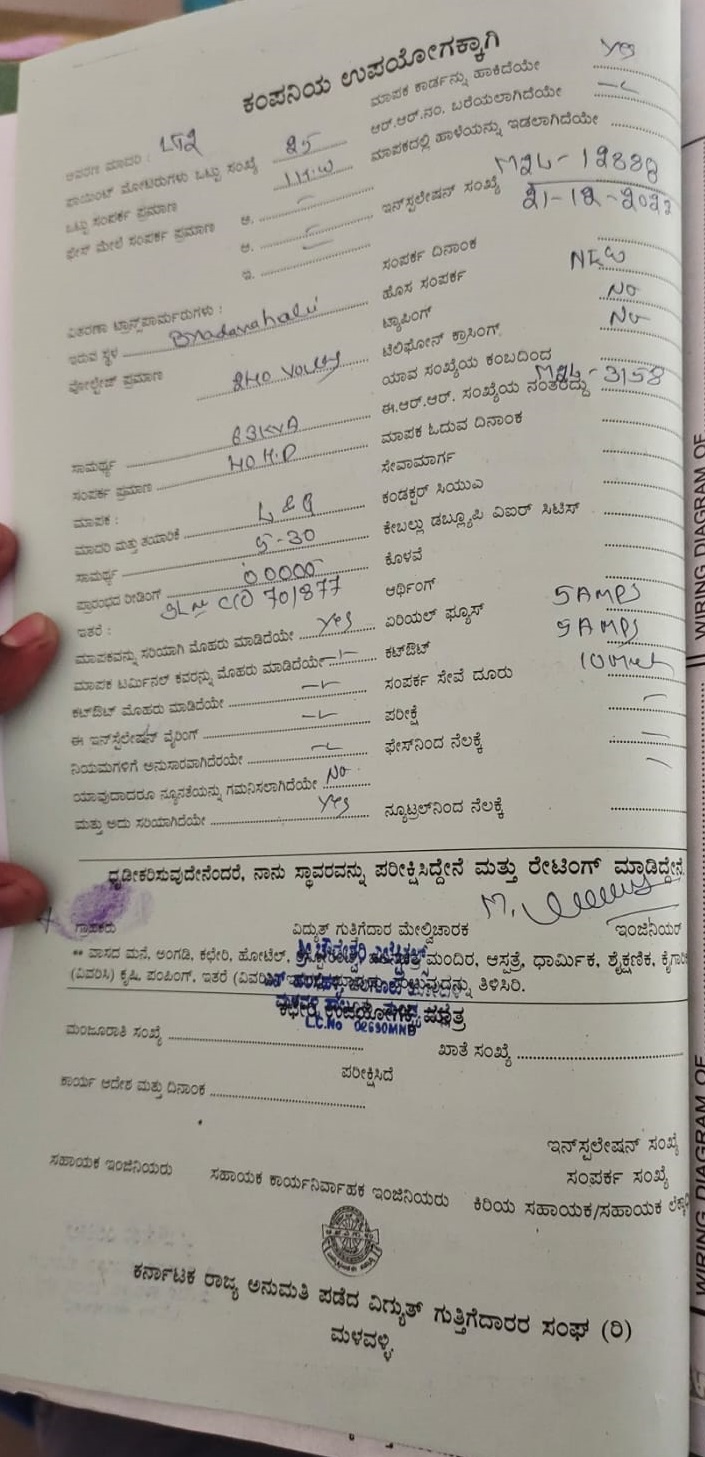 ಕಂಪನಿಯ ಉಪಯೋಗಕ್ಕಾಗಿ
ಆವರಣ ಮಾದರಿ : LT2 ಮಾಪಕ ಕಾರ್ಡನ್ನು ಹಾಕಿದೆಯೇ Yes
ಪಾಯಿಂಟ್ ಮೋಟರುಗಳು ಒಟ್ಟು ಸಂಖ್ಯೆ 25 ಆರ್.ಆರ್.ನಂ. ಬರೆಯಲಾಗಿದೆಯೇ
ಒಟ್ಟು ಸಂಪರ್ಕ ಪ್ರಮಾಣ ಮಾಪಕದಲ್ಲಿ ಹಾಳೆಯನ್ನು ಇಡಲಾಗಿದೆಯೇ
ಫೇಸ್ ಮೇಲೆ ಸಂಪರ್ಕ ಪ್ರಮಾಣ ಅ. ಇನ್‌ಸ್ಟಲೇಷನ್ ಸಂಖ್ಯೆ
ಆ. 21-12-2023
ಇ. ಸಂಪರ್ಕ ದಿನಾಂಕ
ವಿತರಣಾ ಟ್ರಾನ್ಸ್‌ಫಾರ್ಮರುಗಳು : ಹೊಸ ಸಂಪರ್ಕ NEW
ಇರುವ ಸ್ಥಳ ಟ್ಯಾಪಿಂಗ್ No
ವೋಲ್ಟೇಜ್ ಪ್ರಮಾಣ ಟೆಲಿಫೋನ್ ಕ್ರಾಸಿಂಗ್ No
ಯಾವ ಸಂಖ್ಯೆಯ ಕಂಬದಿಂದ
ಸಾಮರ್ಥ್ಯ 63KVA ಈ.ಆರ್.ಆರ್. ಸಂಖ್ಯೆಯ ನಂತರದ್ದು
ಸಂಪರ್ಕ ಪ್ರಮಾಣ 40 H.P ಮಾಪಕ ಓದುವ ದಿನಾಂಕ
ಮಾಪಕ : ಸೇವಾಮಾರ್ಗ
ಮಾದರಿ ಮತ್ತು ತಯಾರಿಕೆ ಕಂಡಕ್ಟರ್ ಸಿಯುವಿ
ಸಾಮರ್ಥ್ಯ 5-30 ಕೇಬಲ್ಲು ಡಬ್ಲ್ಯೂಪಿ ವಿಐರ್ ಸಿಟಿಸ್
ಪ್ರಾರಂಭದ ರೀಡಿಂಗ್ 00000 ಕೊಳವೆ
ಇತರೆ : 701877 ಆರ್ಥಿಂಗ್
ಮಾಪಕವನ್ನು ಸರಿಯಾಗಿ ಮೊಹರು ಮಾಡಿದೆಯೇ Yes ಏರಿಯಲ್ ಫ್ಯೂಸ್ 5 AMPS
ಮಾಪಕ ಟರ್ಮಿನಲ್ ಕವರನ್ನು ಮೊಹರು ಮಾಡಿದೆಯೇ ಕಟ್‌ಔಟ್ 5 AMPS
ಕಟ್‌ಔಟ್ ಮೊಹರು ಮಾಡಿದೆಯೇ ಸಂಪರ್ಕ ಸೇವೆ ದೂರು
ಈ ಇನ್‌ಸ್ಟಲೇಷನ್ ವೈರಿಂಗ್ ಪರೀಕ್ಷೆ
ನಿಯಮಗಳಿಗೆ ಅನುಸಾರವಾಗಿದೆರಯೇ ಫೇಸ್‌ನಿಂದ ನೆಲಕ್ಕೆ
ಯಾವುದಾದರೂ ನ್ಯೂನತೆಯನ್ನು ಗಮನಿಸಲಾಗಿದೆಯೇ No
ಮತ್ತು ಅದು ಸರಿಯಾಗಿದೆಯೇ Yes ನ್ಯೂಟ್ರಲ್‌ನಿಂದ ನೆಲಕ್ಕೆ
ಧೃಡೀಕರಿಸುವುದೇನೆಂದರೆ, ನಾನು ಸ್ಥಾವರವನ್ನು ಪರೀಕ್ಷಿಸಿದ್ದೇನೆ ಮತ್ತು ರೇಟಿಂಗ್ ಮಾಡಿದ್ದೇನೆ
ಗ್ರಾಹಕರು ವಿದ್ಯುತ್ ಗುತ್ತಿಗೆದಾರ ಮೇಲ್ವಿಚಾರಕ ಇಂಜಿನಿಯರ್
** ವಾಸದ ಮನೆ, ಅಂಗಡಿ, ಕಛೇರಿ, ಹೋಟೆಲ್, ಮಂದಿರ, ಆಸ್ಪತ್ರೆ, ಧಾರ್ಮಿಕ, ಶೈಕ್ಷಣಿಕ,
(ವಿವರಿಸಿ) ಕೃಷಿ, ಪಂಪಿಂಗ್, ಇತರೆ ತಿಳಿಸಿರಿ.
ಕಛೇರಿ ಉಪಯೋಗಕ್ಕೆ ಮಾತ್ರ
L.C.No 02690MNB
ಮಂಜೂರಾತಿ ಸಂಖ್ಯೆ ಖಾತೆ ಸಂಖ್ಯೆ
ಕಾರ್ಯ ಆದೇಶ ಮತ್ತು ದಿನಾಂಕ ಪರೀಕ್ಷಿಸಿದೆ
ಇನ್‌ಸ್ಟಲೇಷನ್ ಸಂಖ್ಯೆ
ಸಂಪರ್ಕ ಸಂಖ್ಯೆ
ಸಹಾಯಕ ಇಂಜಿನಿಯರು ಸಹಾಯಕ ಕಾರ್ಯನಿರ್ವಾಹಕ ಇಂಜಿನಿಯರು ಕಿರಿಯ ಸಹಾಯಕ/ಸಹಾಯಕ
ಕರ್ನಾಟಕ ರಾಜ್ಯ ಅನುಮತಿ ಪಡೆದ ವಿದ್ಯುತ್ ಗುತ್ತಿಗೆದಾರರ ಸಂಘ (ರಿ)
ಮಳವಳ್ಳಿ
WIRING DIAGRAM OF
WIRING DIAGRAM OF